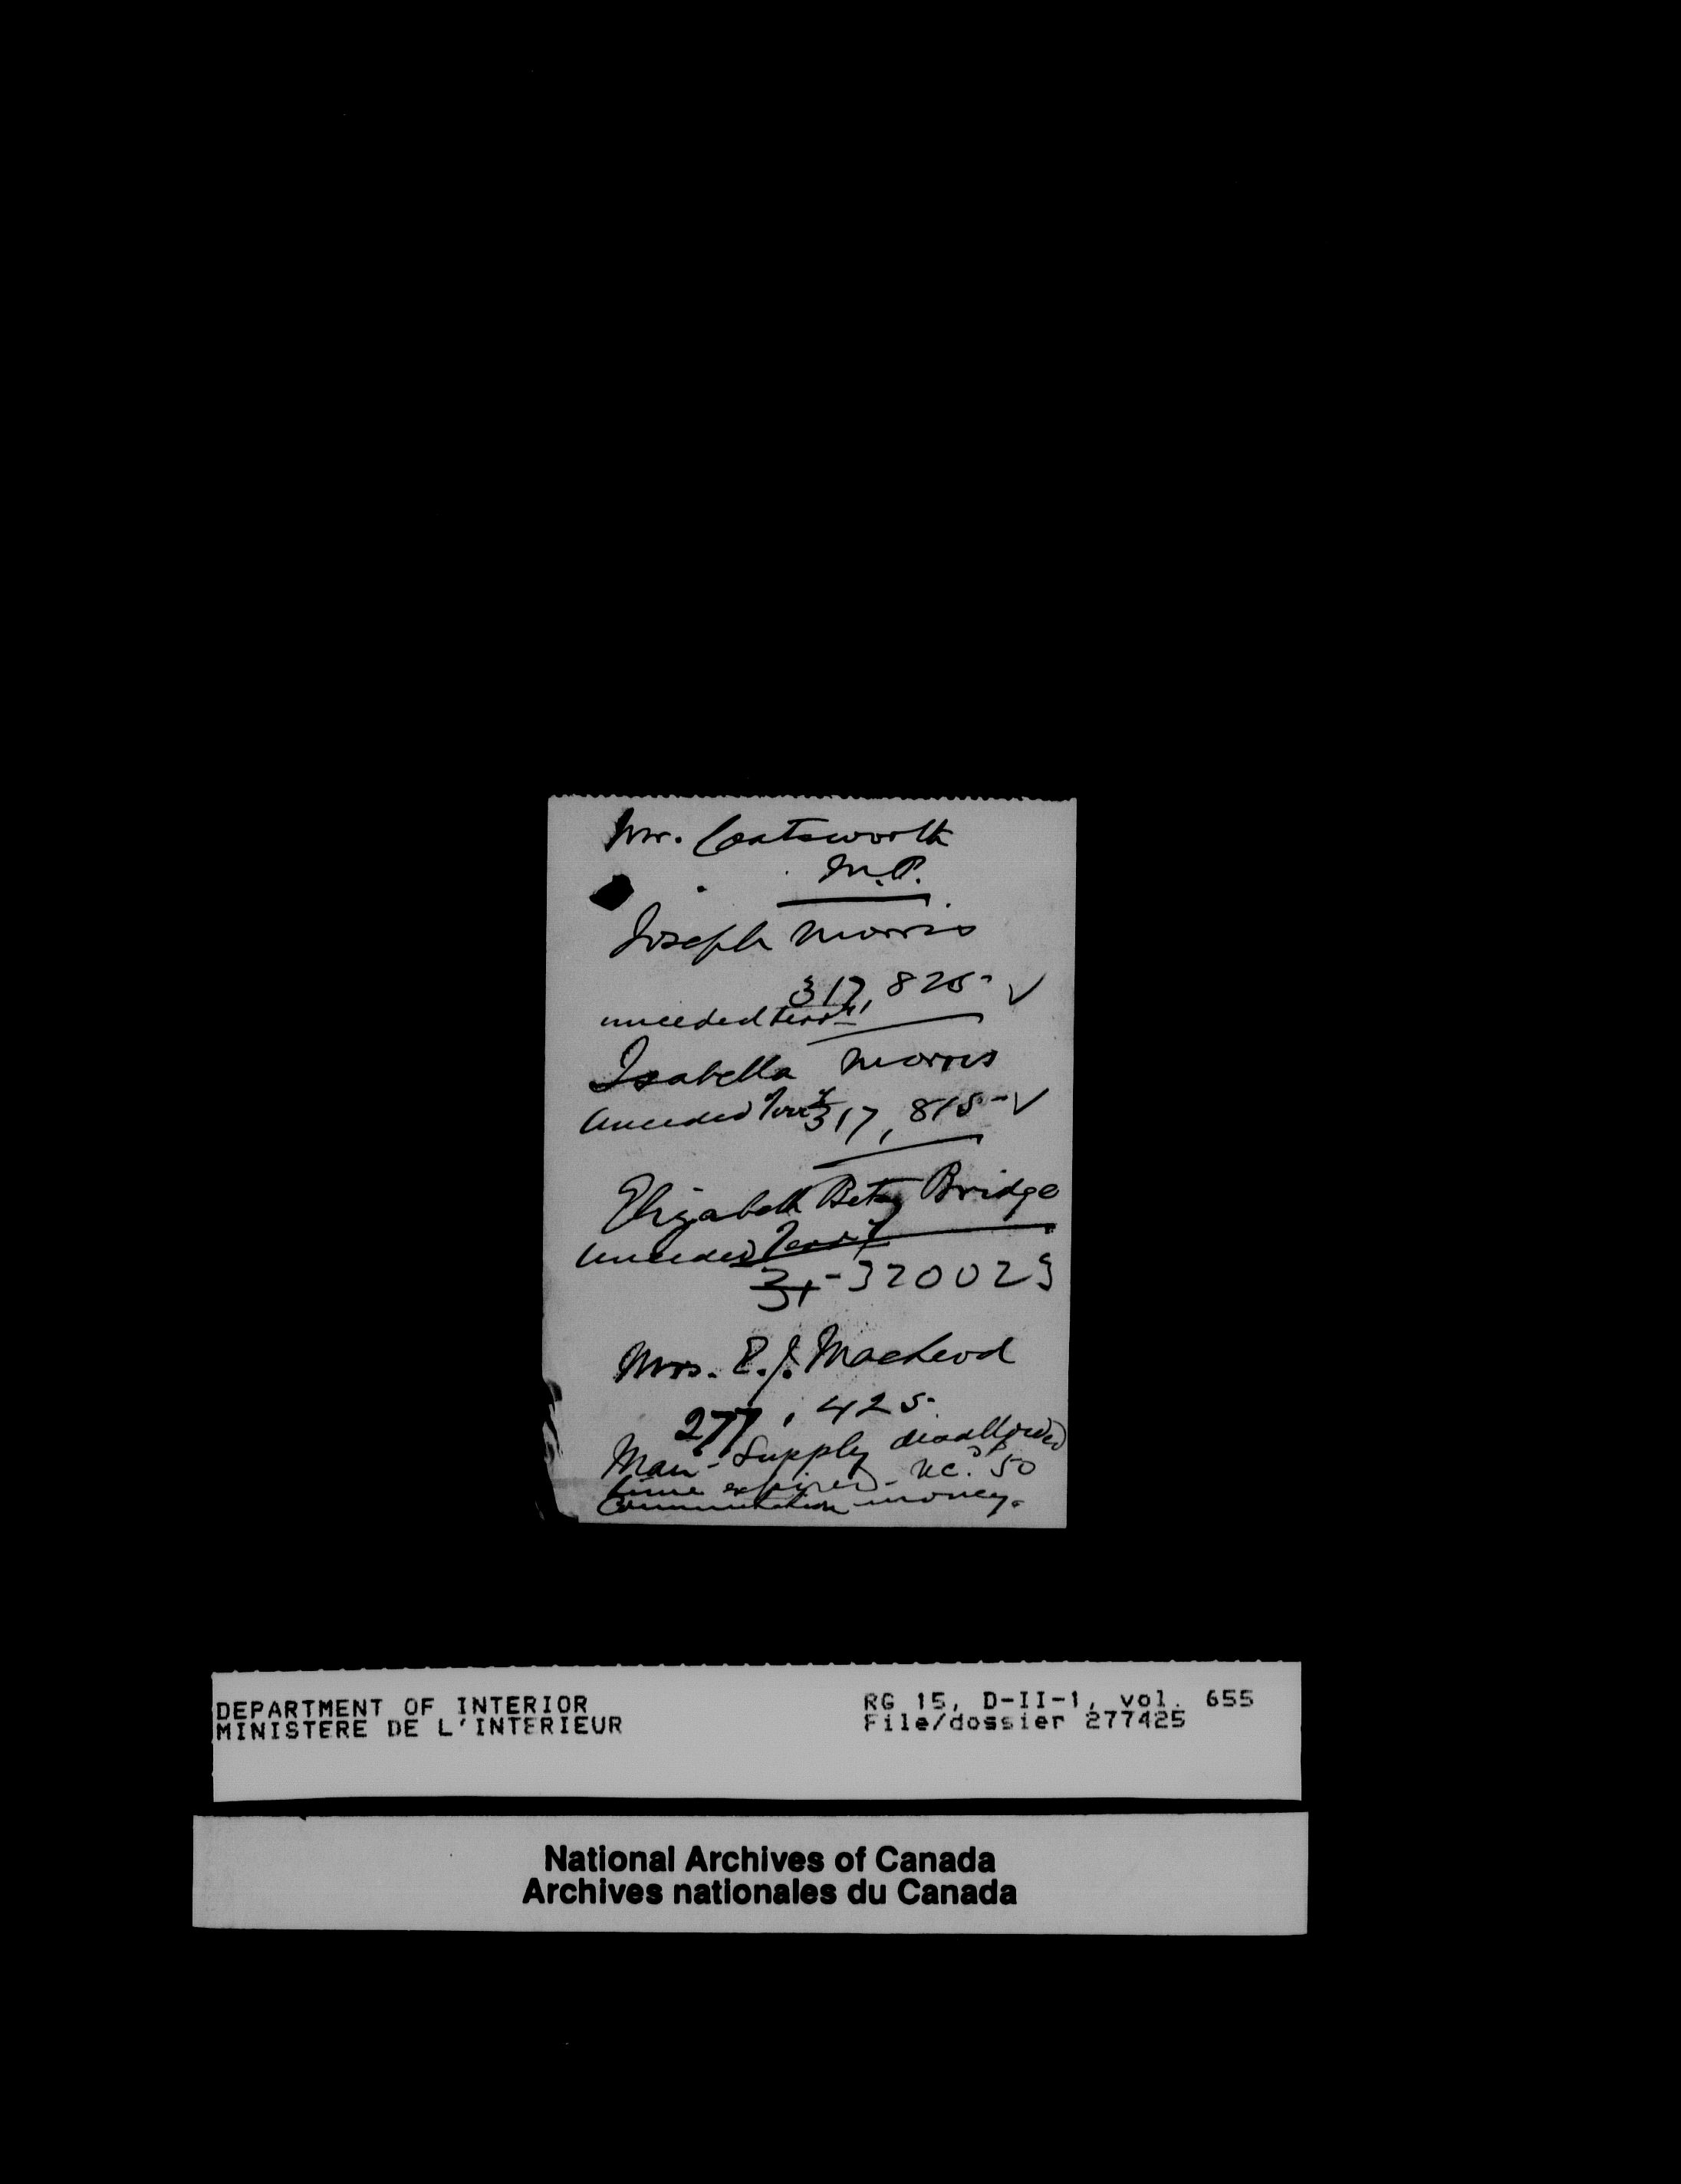 Mr. Coatsworth
M.P.
Joseph Morris
317,825 ✓
unceded terry
Isabella Morris
Unceded Terry 317,815 ✓
Elizabeth Betsy Bridge
Unceded Terry
31 - 320023
Mrs. E.J. MacLeod
277,425
Man - Supply disallowed
time expired - N.C. 50
Commutation money.
DEPARTMENT OF INTERIOR
MINISTERE DE L'INTERIEUR
RG 15, D-II-1, vol. 655
File/dossier 277425
National Archives of Canada
Archives nationales du Canada